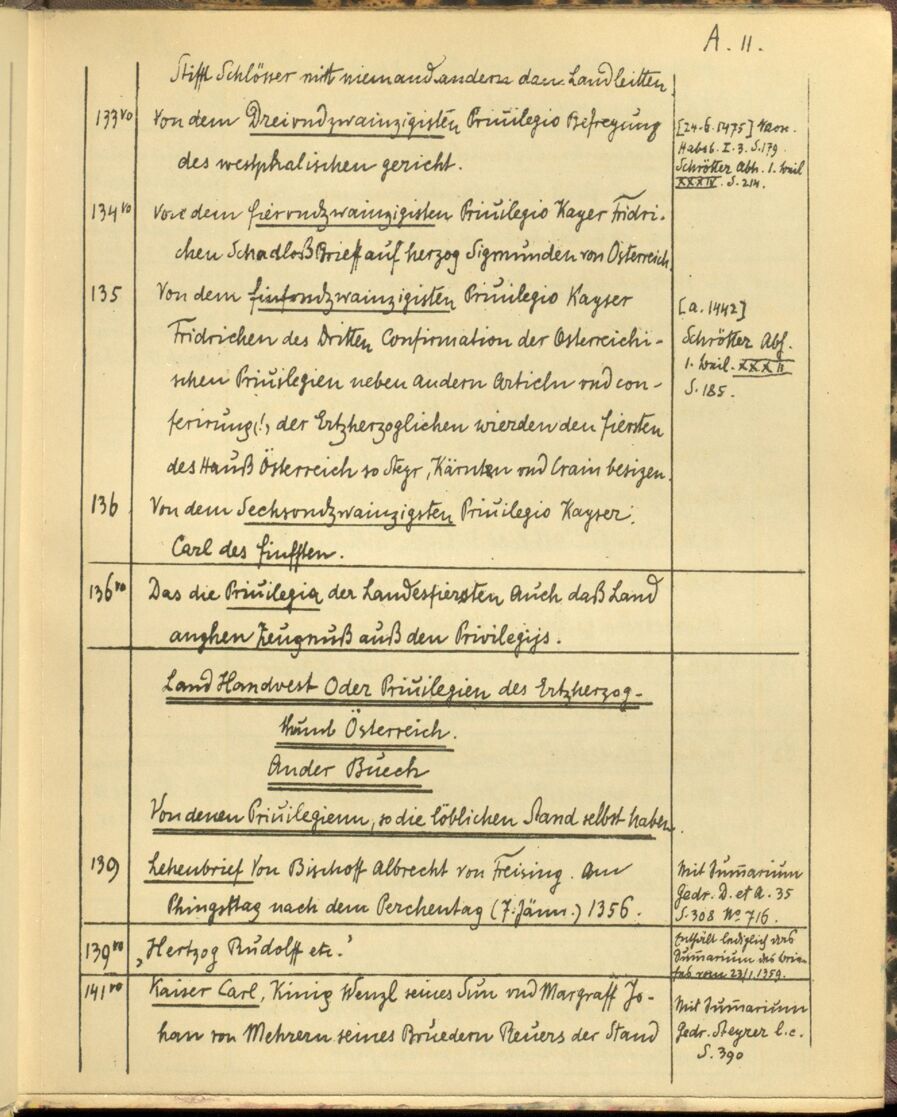 A. 11.
Stifft Schlösser mitt niemand andern dan Landleitten
133vo Von dem Dreivndzwainzigisten Priuilegio Befreyung
des westphalischen gericht.
[24.6.1475]
Habsb. I. 3. S. 179.
Schrötter Abh. 1. Beil
XXXIV. S. 214.
134vo Von dem fierondzwainzigisten Priuilegio Kayer Fridri-
chen SchadloßBrieff auf herzog Sigmunden von Österreich
135 Von dem finfondzwainzigisten Priuilegio Kayser
Fridrichen des Dritten Confirmation der Österreichi-
schen Priuilegien neben andern Articln vnd con-
ferirung(!) der Ertzherzoglichen wierden den fiersten
des Hauß Österreich so Steyr, Kärnten vnd Crain besizen.
[a. 1442]
Schrötter Abh.
1. Beil. XXXII
S. 185.
136 Von dem Sechsondzwainzigsten Priuilegio Kayser
Carl des finfften.
136vo Das die Priuilegia der Landesfiersten Auch daß Land
anghen Zeugnuß auß den Privilegijs.
Land Handvest Oder Priuilegien des Ertzherzog-
thumb Österreich.
Ander Buech
Von denen Priuilegienn, so die löblichen Stand selbst haben.
139 Lehenbrief Von Bischoff Albrecht von Freising. Am
Phingsttag nach dem Perchentag (7. Jänn.) 1356.
Mit Sum̄arium
Gedr. D. et A. 35
S. 308 No 716.
139vo „Hertzog Rudolff etc."
Enthält lediglich das
Sum̄arium des Brie-
fes vom 23/1. 1359.
141vo Kaiser Carl, König Wenzl seines Sun vnd Margraff Jo-
han von Mehrern seines Bruedern Reuers der Stand
Mit Sum̄arium
Gedr. Steyrer l.c.
S. 390